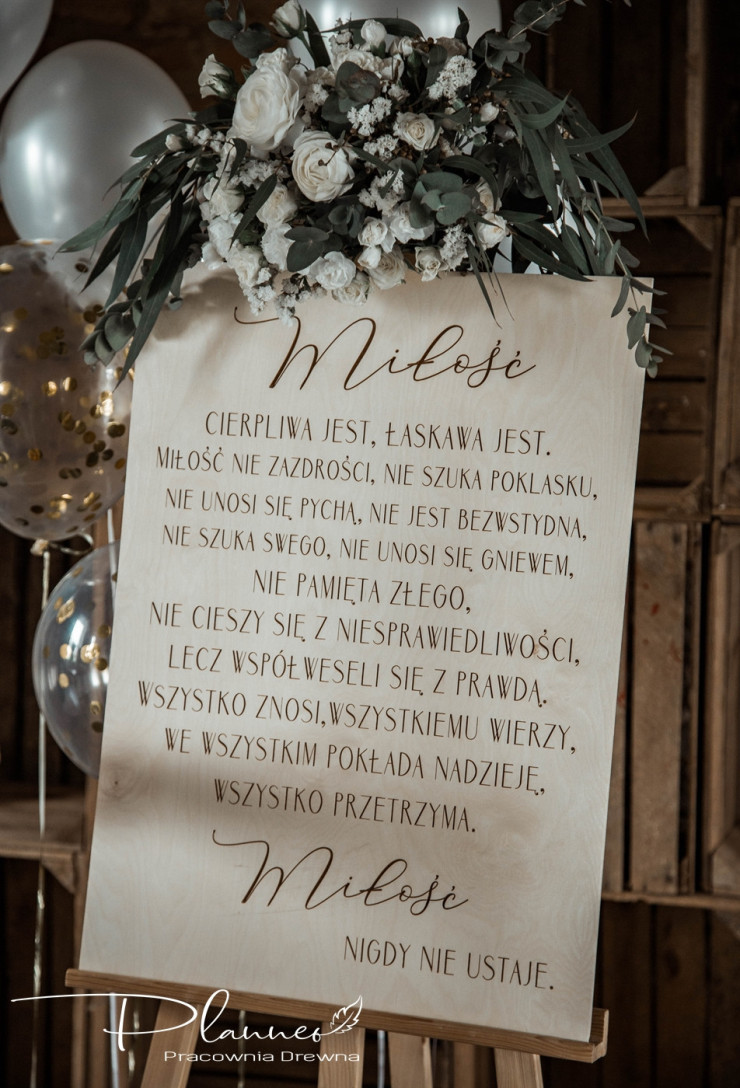 Miłość
CIERPLIWA JEST, ŁASKAWA JEST.
MIŁOŚĆ NIE ZAZDROŚCI, NIE SZUKA POKLASKU,
NIE UNOSI SIĘ PYCHĄ, NIE JEST BEZWSTYDNA,
NIE SZUKA SWEGO, NIE UNOSI SIĘ GNIEWEM,
NIE PAMIĘTA ZŁEGO,
NIE CIESZY SIĘ Z NIESPRAWIEDLIWOŚCI,
LECZ WSPÓŁWESELI SIĘ Z PRAWDĄ.
WSZYSTKO ZNOSI,WSZYSTKIEMU WIERZY,
WE WSZYSTKIM POKŁADA NADZIEJĘ,
WSZYSTKO PRZETRZYMA.
Miłość
NIGDY NIE USTAJE.
Planneo
Pracownia Drewna